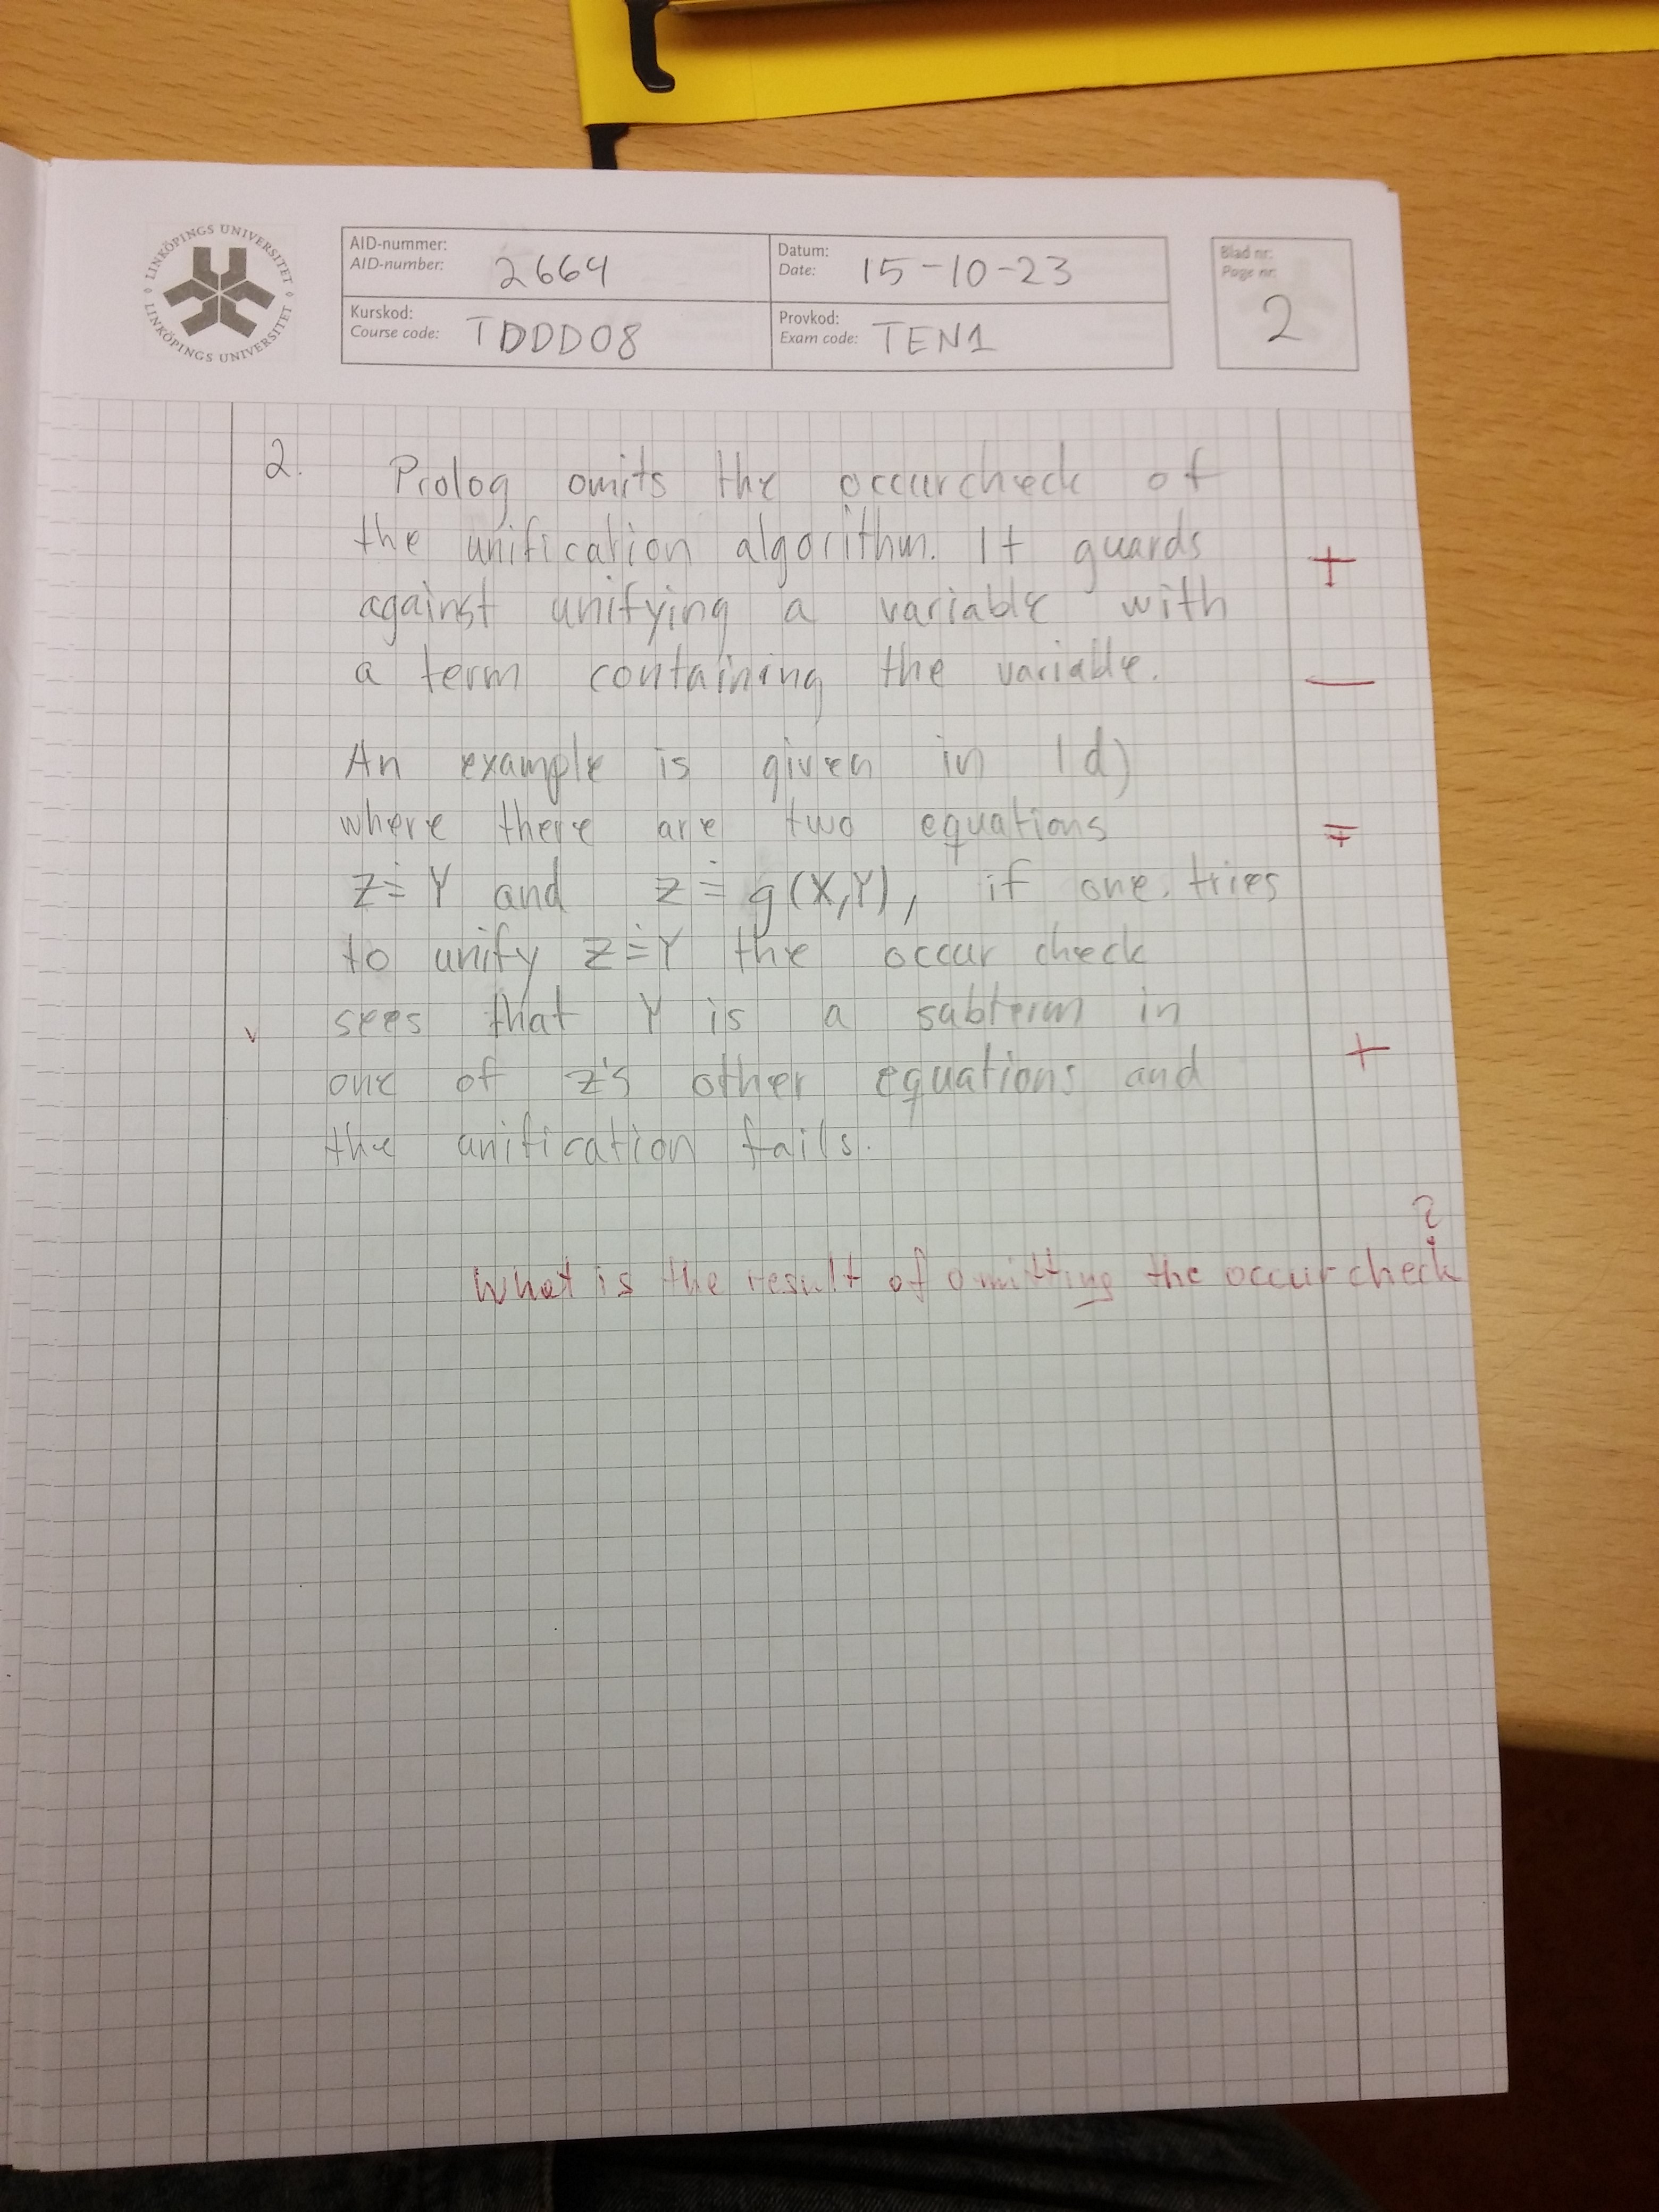 LINKÖPINGS UNIVERSITET
LINKÖPINGS UNIVERSITET
AID-nummer:
AID-number: 2664
Datum:
Date: 15-10-23
Blad nr:
Page nr:
2
Kurskod:
Course code: TDDD08
Provkod:
Exam code: TEN1
2. Prolog omits the occurcheck of
the unification algorithm. It guards
+
against unifying a variable with
a term containing the variable.
—
An example is given in 1d)
where there are two equations
∓
z ≐ Y and z ≐ g(X,Y), if one tries
to unify z ≐ Y the occur check
sees that Y is a subterm in
v
+
one of z's other equations and
the unification fails.
What is the result of omitting the occur check
?